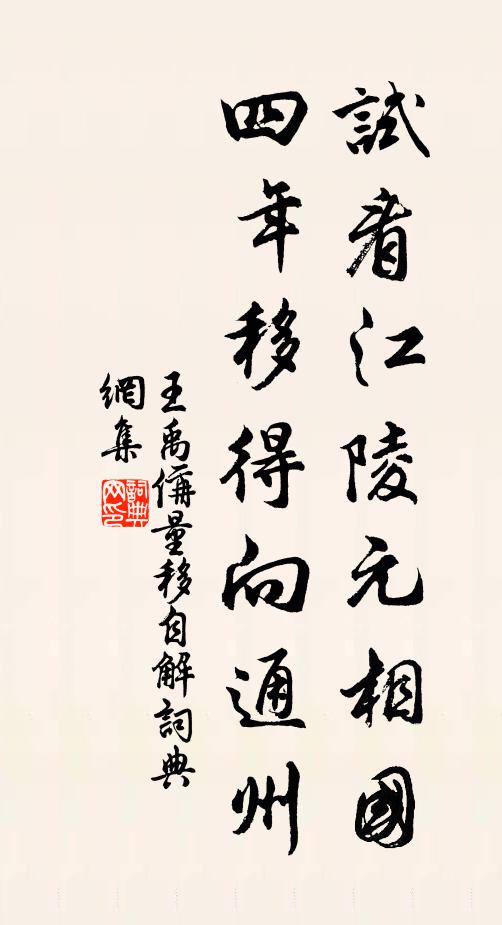 試看江陵元相國
四年移得向通州
王禹偁量移自解詞典
網集
詞典
网印